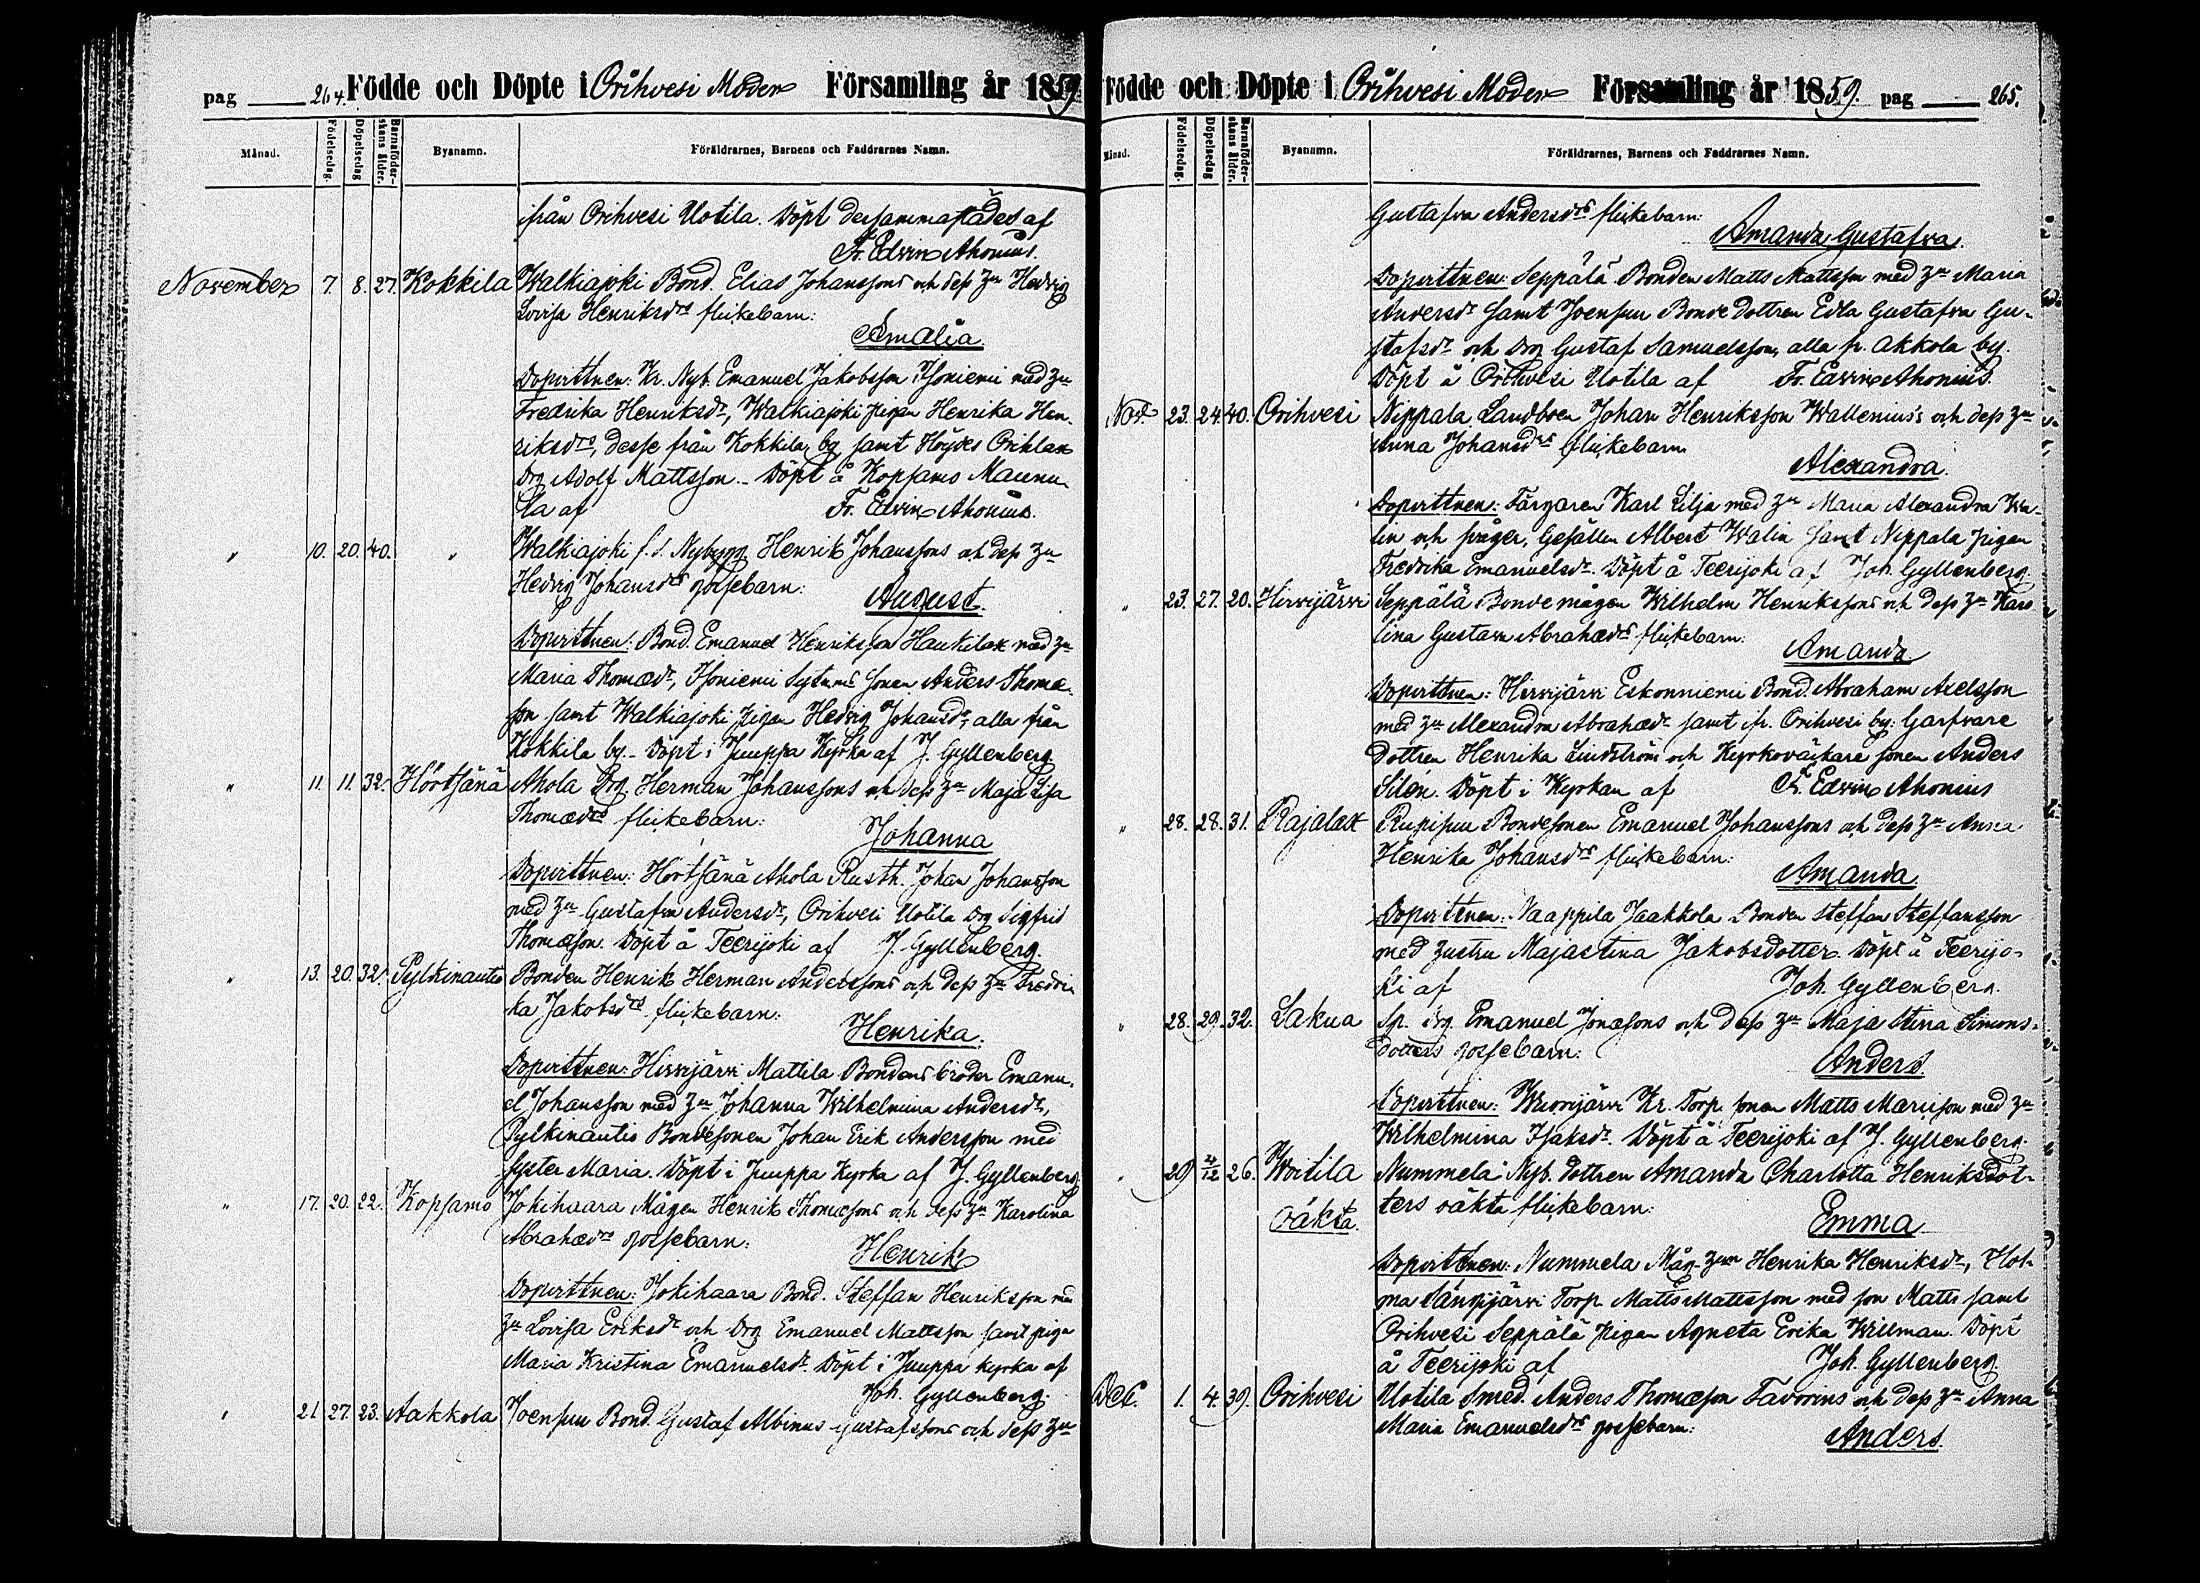 pag 264. Födde och Döpte i Orihvesi Moder Församling år 1859
Månad. Födelsedag. Döpelsedag Barnaföderskans ålder. Bynamn. Föräldrarnes, Barnens och Faddrarnes Namn.
ifrån Orihvesi Uotila. Döpt dersammastädes af
Fr. Edvin Ahonius.
November 7. 8. 27. Kokkila Walkiajoki Bond. Elias Johanssons och dess hu Hedvig
Lovisa Henriksdrs flickebarn:
Amalia.
Dopvittnen: Kr. Nyb. Emanuel Jakobsson Isoniemi med hu
Fredrika Henriksdr, Walkiajoki pigan Henrika Hen-
riksdrs, desse från Kokkila by samt Höydes Orihlax
Drg Adolf Mattsson. Döpt å Kopsamo Maunu-
la af Fr. Edvin Ahonius.
" 10. 20. 40. " Walkiajoki f.d. Nybygg. Henrik Johanssons och dess hu
Hedvig Johansdrs gossebarn:
August.
Dopvittnen: Bond. Emanuel Henriksson Haukilax med hu
Maria Thomædr, Isoniemi Sytnings sonen Anders Thomæ-
son samt Walkiajoki pigan Hedvig Johansdr, alla från
Kokkila by. Döpt i Juuppa Kyrka af J. Gyllenberg
" 11. 11. 32. Hörtsänä Ahola Drg. Herman Johanssons och dess hu Maja Lisa
Thomædrs flickebarn:
Johanna
Dopvittnen: Hörtsänä Ahola Rusth. Johan Johansson
med hu Gustafva Andersdr, Orihvesi Uotila Drg Sigfrid
Thomæson. Döpt å Teerijoki af J. Gyllenberg.
" 13. 20. 32. Pylkinautio Bonden Henrik Herman Anderssons och dess hu Fredri-
ka Jakobsdrs flickebarn:
Henrika.
Dopvittnen: Hirvijärvi Mattila Bondens broder Emanu-
el Johansson med hu Johanna Wilhelmina Andersdr,
Pylkinautio Bondesonen Johan Erik Andersson med
syster Maria. Döpt i Juuppa Kyrka af J. Gyllenberg
" 17. 20. 22. Kopsamo Jokihaara Mågen Henrik Thomæsons och dess hu Karolina
Abrahædrs gossebarn:
Henrik
Dopvittnen: Jokihaara Bond. Steffan Henriksson med
hu Lovisa Eriksdr och Drg Emanuel Mattsson samt pigan
Maria Kristina Emanuelsdr. Döpt i Juuppa kyrka af
Joh. Gyllenberg.
" 21. 27. 23. Aakkola Joensuu Bond. Gustaf Albinus Gustafssons och dess hu
Födde och Döpte i Orihvesi Moder Församling år 1859. pag 265.
Månad. Födelsedag. Döpelsedag Barnaföderskans ålder. Bynamn. Föräldrarnes, Barnens och Faddrarnes Namn.
Gustafva Andersdrs flickebarn:
Amanda Gustafva.
Dopvittnen: Seppälä Bonden Matts Mattsson med hu Maria
Andersdr samt Joensuu Bonde dottren Edla Gustafva Gu-
stafsdr och Drg Gustaf Samuelsson, alla fr. Akkola by.
Döpt å Orihvesi Uotila af Fr. Edvin Ahonius.
Nov. 23. 24. 40. Orihvesi Nippala Landboen Johan Henriksson Wallenius's och dess hu
Anna Johansdrs flickebarn
Alexandra.
Dopvittnen: Färgaren Karl Lilja med hu Maria Alexandra Wa-
lin och svåger, Gesällen Albert Walin samt Nippala pigan
Fredrika Emanuelsdr. Döpt å Teerijoki af Joh. Gyllenberg
" 23. 27. 20. Hirvijärvi Seppälä Bondemågen Wilhelm Henrikssons och dess hu Karo-
lina Gustava Abrahædrs flickebarn:
Amanda
Dopvittnen: Hirvijärvi Eskonniemi Bond. Abraham Axelsson
med hu Alexandra Abrahædr samt ifr. Orihvesi by: Garfvare
dottren Henrika Lindström och Kyrkoväckare sonen Anders
Silen. Döpt i Kyrkan af Fr. Edvin Ahonius
" 28. 28. 31. Pajalax Bondesonen Emanuel Johanssons och dess hu Anna
Henrika Johansdrs flickebarn:
Amanda
Dopvittnen: Naappila Jaakkola Bonden Steffan Steffansson
med hustru Majastina Jakobsdotter. Döpt å Teerijo-
ki af Joh. Gyllenberg.
" 28. 29. 32. Lakua Sp. drg. Emanuel Jonæsons och dess hu Maja Stina Simons-
dotters gossebarn:
Anders.
Dopvittnen: Wuorijärvi Kr. Torp. sonen Matts Mariison med hu
Wilhelmina Isaksdr. Döpt å Teerijoki af J. Gyllenberg.
" 29 4/12 26. Woitila Nummela Nyb. dottren Amanda Charlotta Henriksdot-
oäkta. ters oäkta flickebarn:
Emma
Dopvittnen: Nummela Måg. hun Henrika Henriksdr, Hol-
ma Torp. Matts Mattsson med son Matts samt
Orihvesi Seppälä pigan Agneta Erika Willman. Döpt
å Teerijoki af Joh. Gyllenberg.
Dec. 1. 4. 39. Orihvesi Uotila Smed. Anders Thomæson Favorins och dess hu Anna
Maria Emanuelsdrs gossebarn:
Anders.